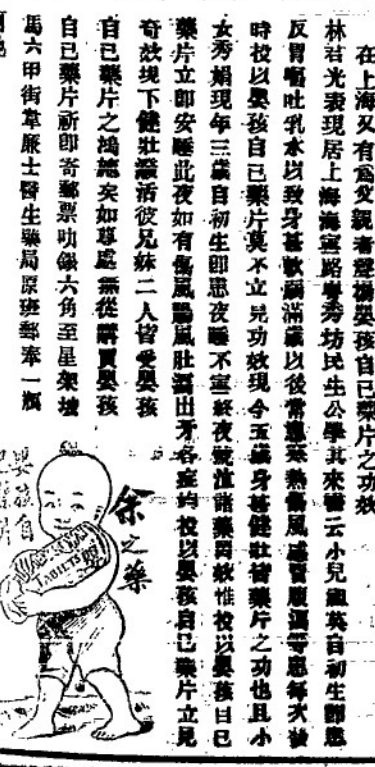 在上海又有爲父親者聲揚嬰孩自己藥片之功效
林君光表現居上海海寧路粤秀坊民生公學其來書云小兒國英自初生卽患
反胃嘔吐乳水以致身甚軟弱滿歲以後常患寒熱傷風咳冒腹瀉等患每次發
時投以嬰孩自己藥片莫不立見功效現今五歲身甚健壯皆藥片之功也且小
女秀娟現年三歲自初生卽患夜睡不寧終夜號泣諸藥罔效惟投以嬰孩自己
藥片立卽安睡此夜如有傷風驚風肚瀉出牙各症均投以嬰孩自己藥片立見
奇效現下健壯潑活彼兄妹二人皆受嬰孩
自己藥片之鴻施矣如尊處無從購買嬰孩
自己藥片祈卽寄郵票叻銀六角至星架坡
馬六甲街韋廉士醫生藥局原班郵奉一瓶
余之藥
嬰孩自
TABLETS